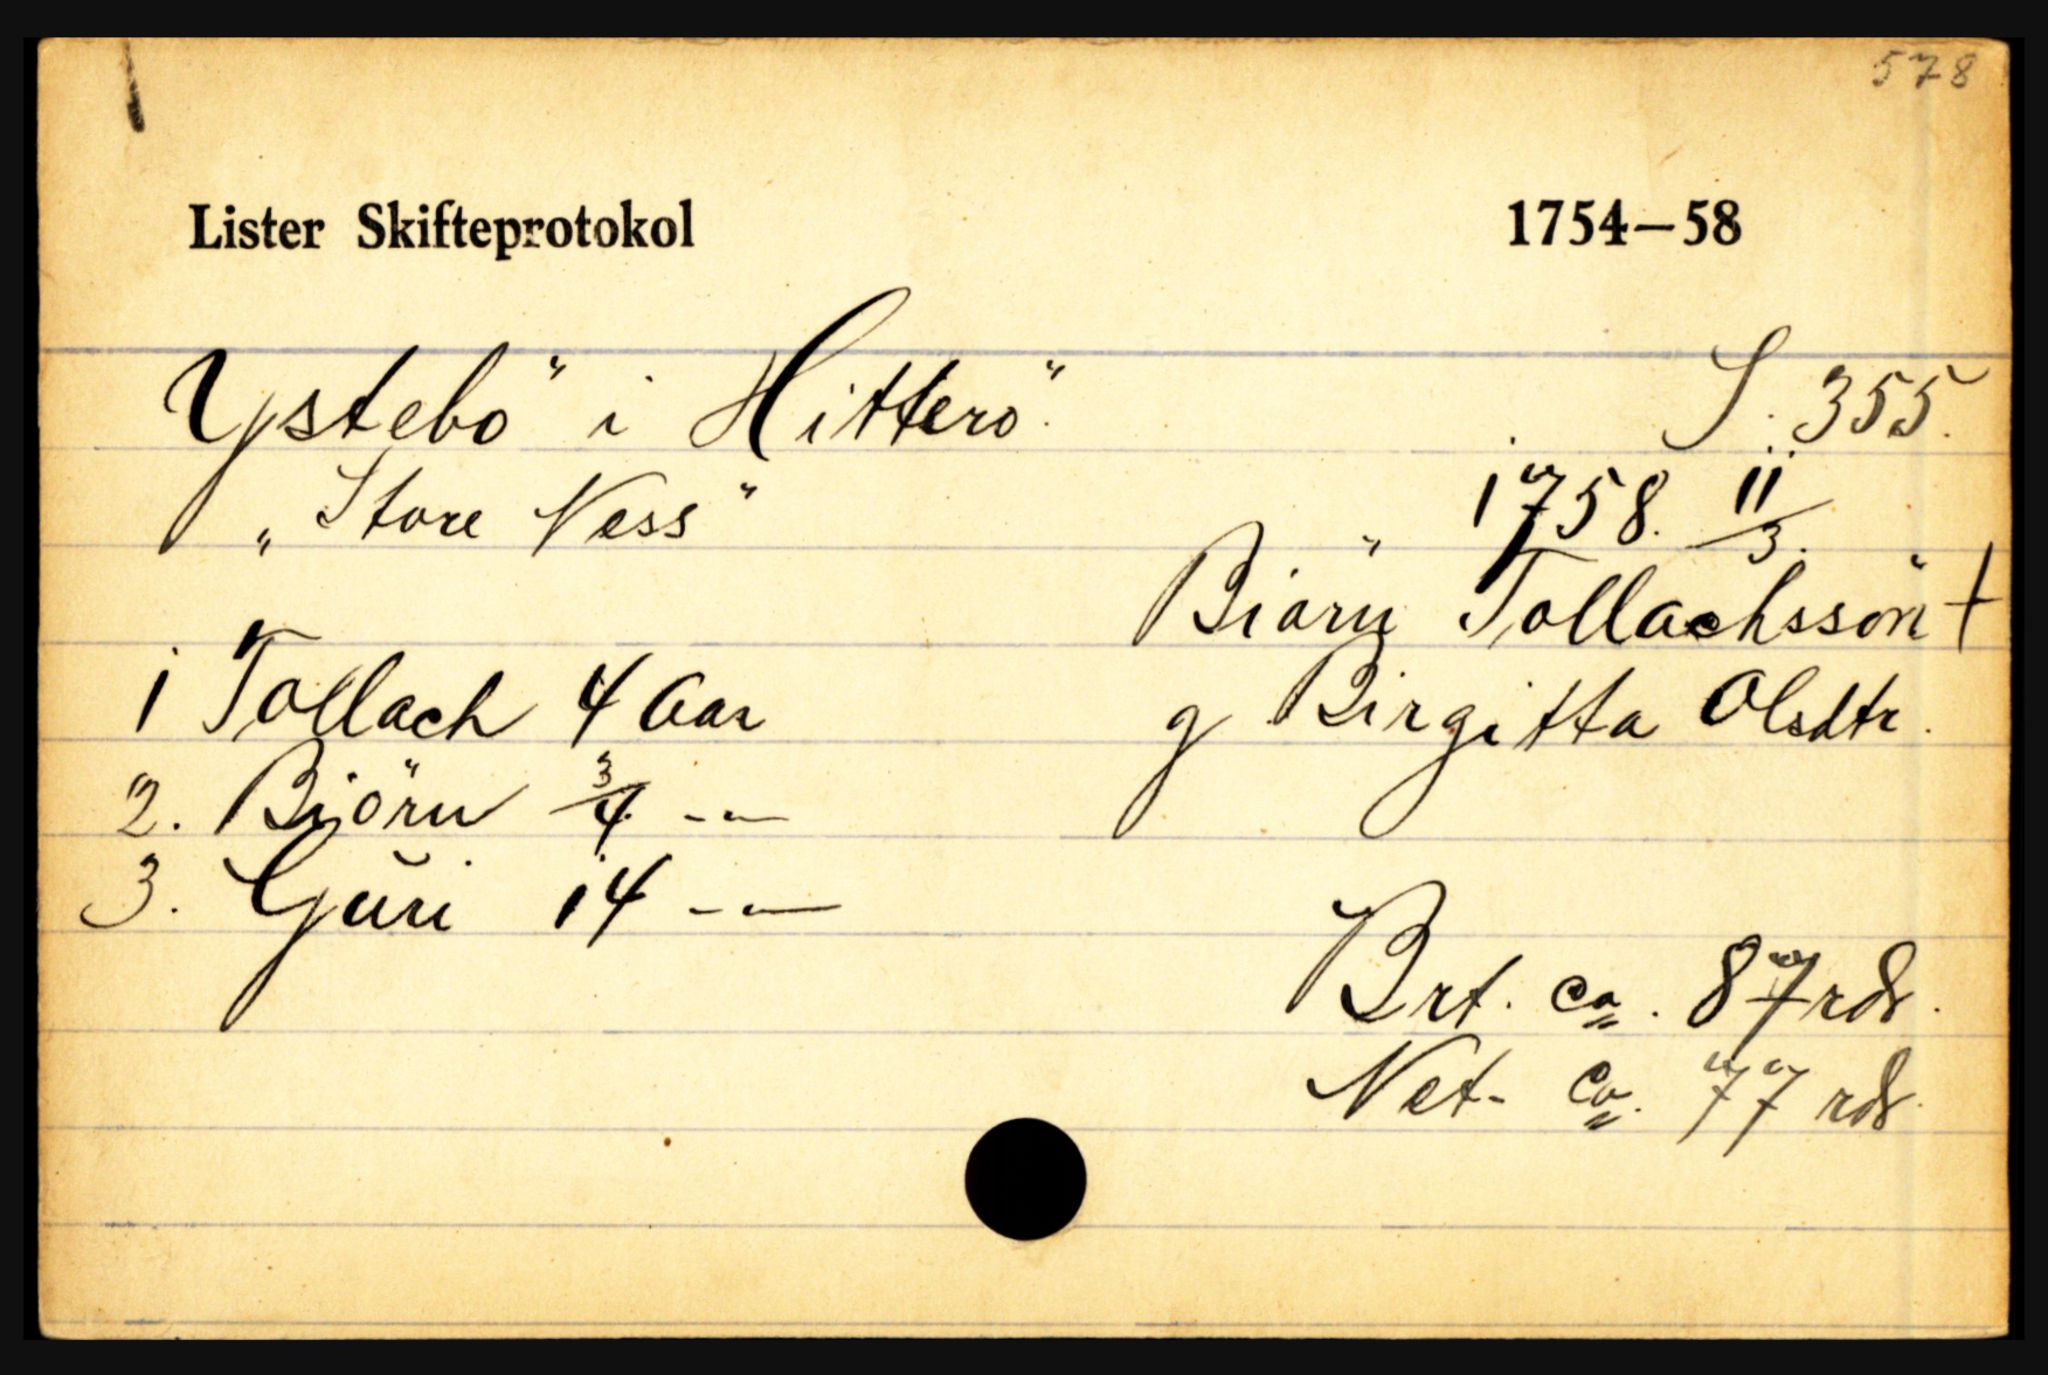 578
Lister Skifteprotokol 1754–58
Ystebö i Hitterö. S. 355.
„Store Ness" 1758. 11/3.
Biörn Tollachssön †
1 Tollach 4 Aar g Birgitta Olsdtr.
2. Björn 3/4 -—
3. Guri 14 -—
Brt. ca. 87 rdr.
Net- ca. 77 rdr.